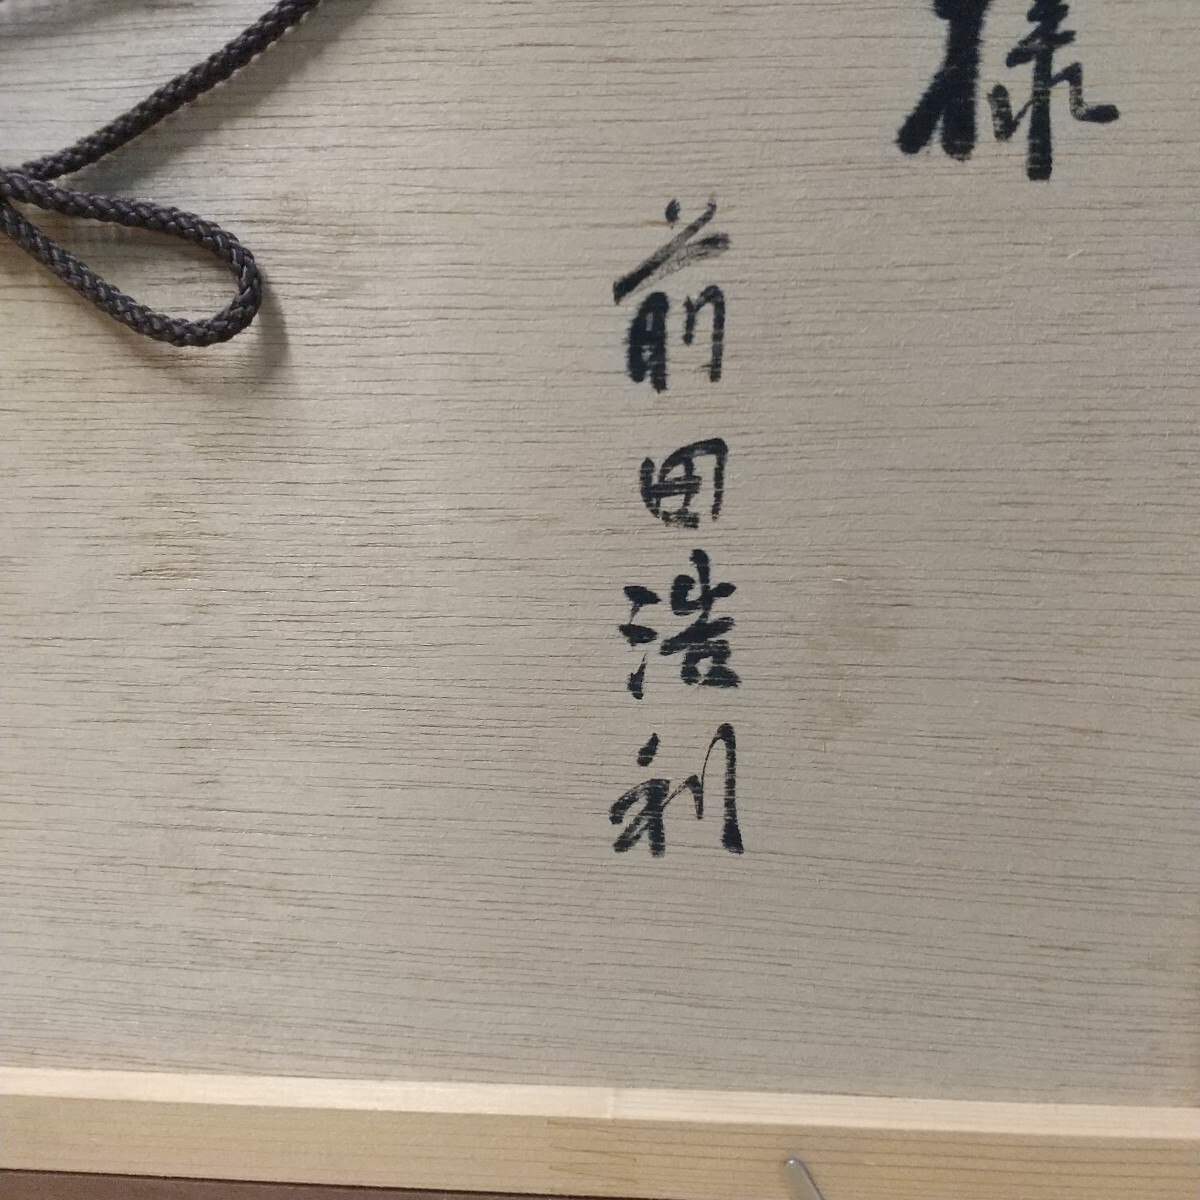 様
前田浩利